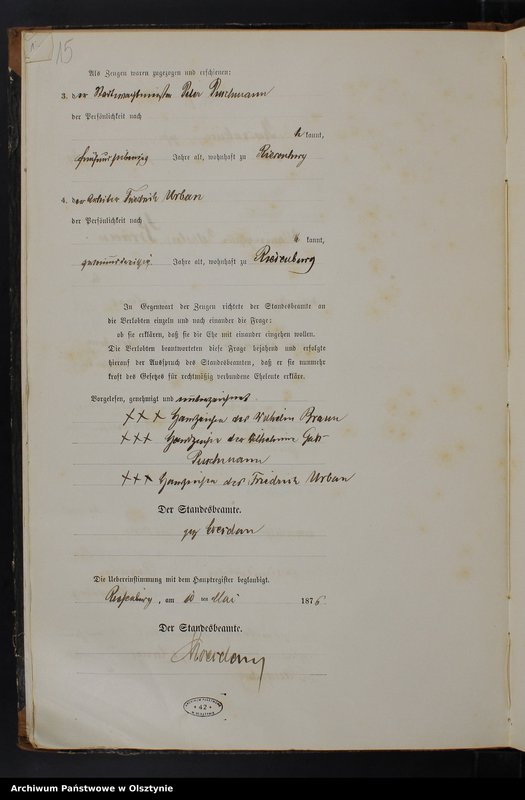 15
Als Zeugen waren zugezogen und erschienen:
3. der Peter Puschmann
der Persönlichkeit nach
kannt,
Jahre alt, wohnhaft zu Riesenburg
4. der Arbeiter Friedrich Urban
der Persönlichkeit nach
kannt,
Jahre alt, wohnhaft zu Riesenburg
In Gegenwart der Zeugen richtete der Standesbeamte an
die Verlobten einzeln und nach einander die Frage:
ob sie erklären, daß sie die Ehe mit einander eingehen wollen.
Die Verlobten beantworteten diese Frage bejahend und erfolgte
hierauf der Ausspruch des Standesbeamten, daß er sie nunmehr
kraft des Gesetzes für rechtmäßig verbundene Eheleute erkläre.
Vorgelesen, genehmigt und unterzeichnet.
+++ Handzeichen des Wilhelm Braun
+++ Handzeichen der Wilhelmine
Puschmann
+++ Handzeichen des Friedrich Urban
Der Standesbeamte.
gez.
Die Uebereinstimmung mit dem Hauptregister beglaubigt.
Riesenburg, am 10 ten Mai 1876
Der Standesbeamte.
42
Archiwum Państwowe w Olsztynie